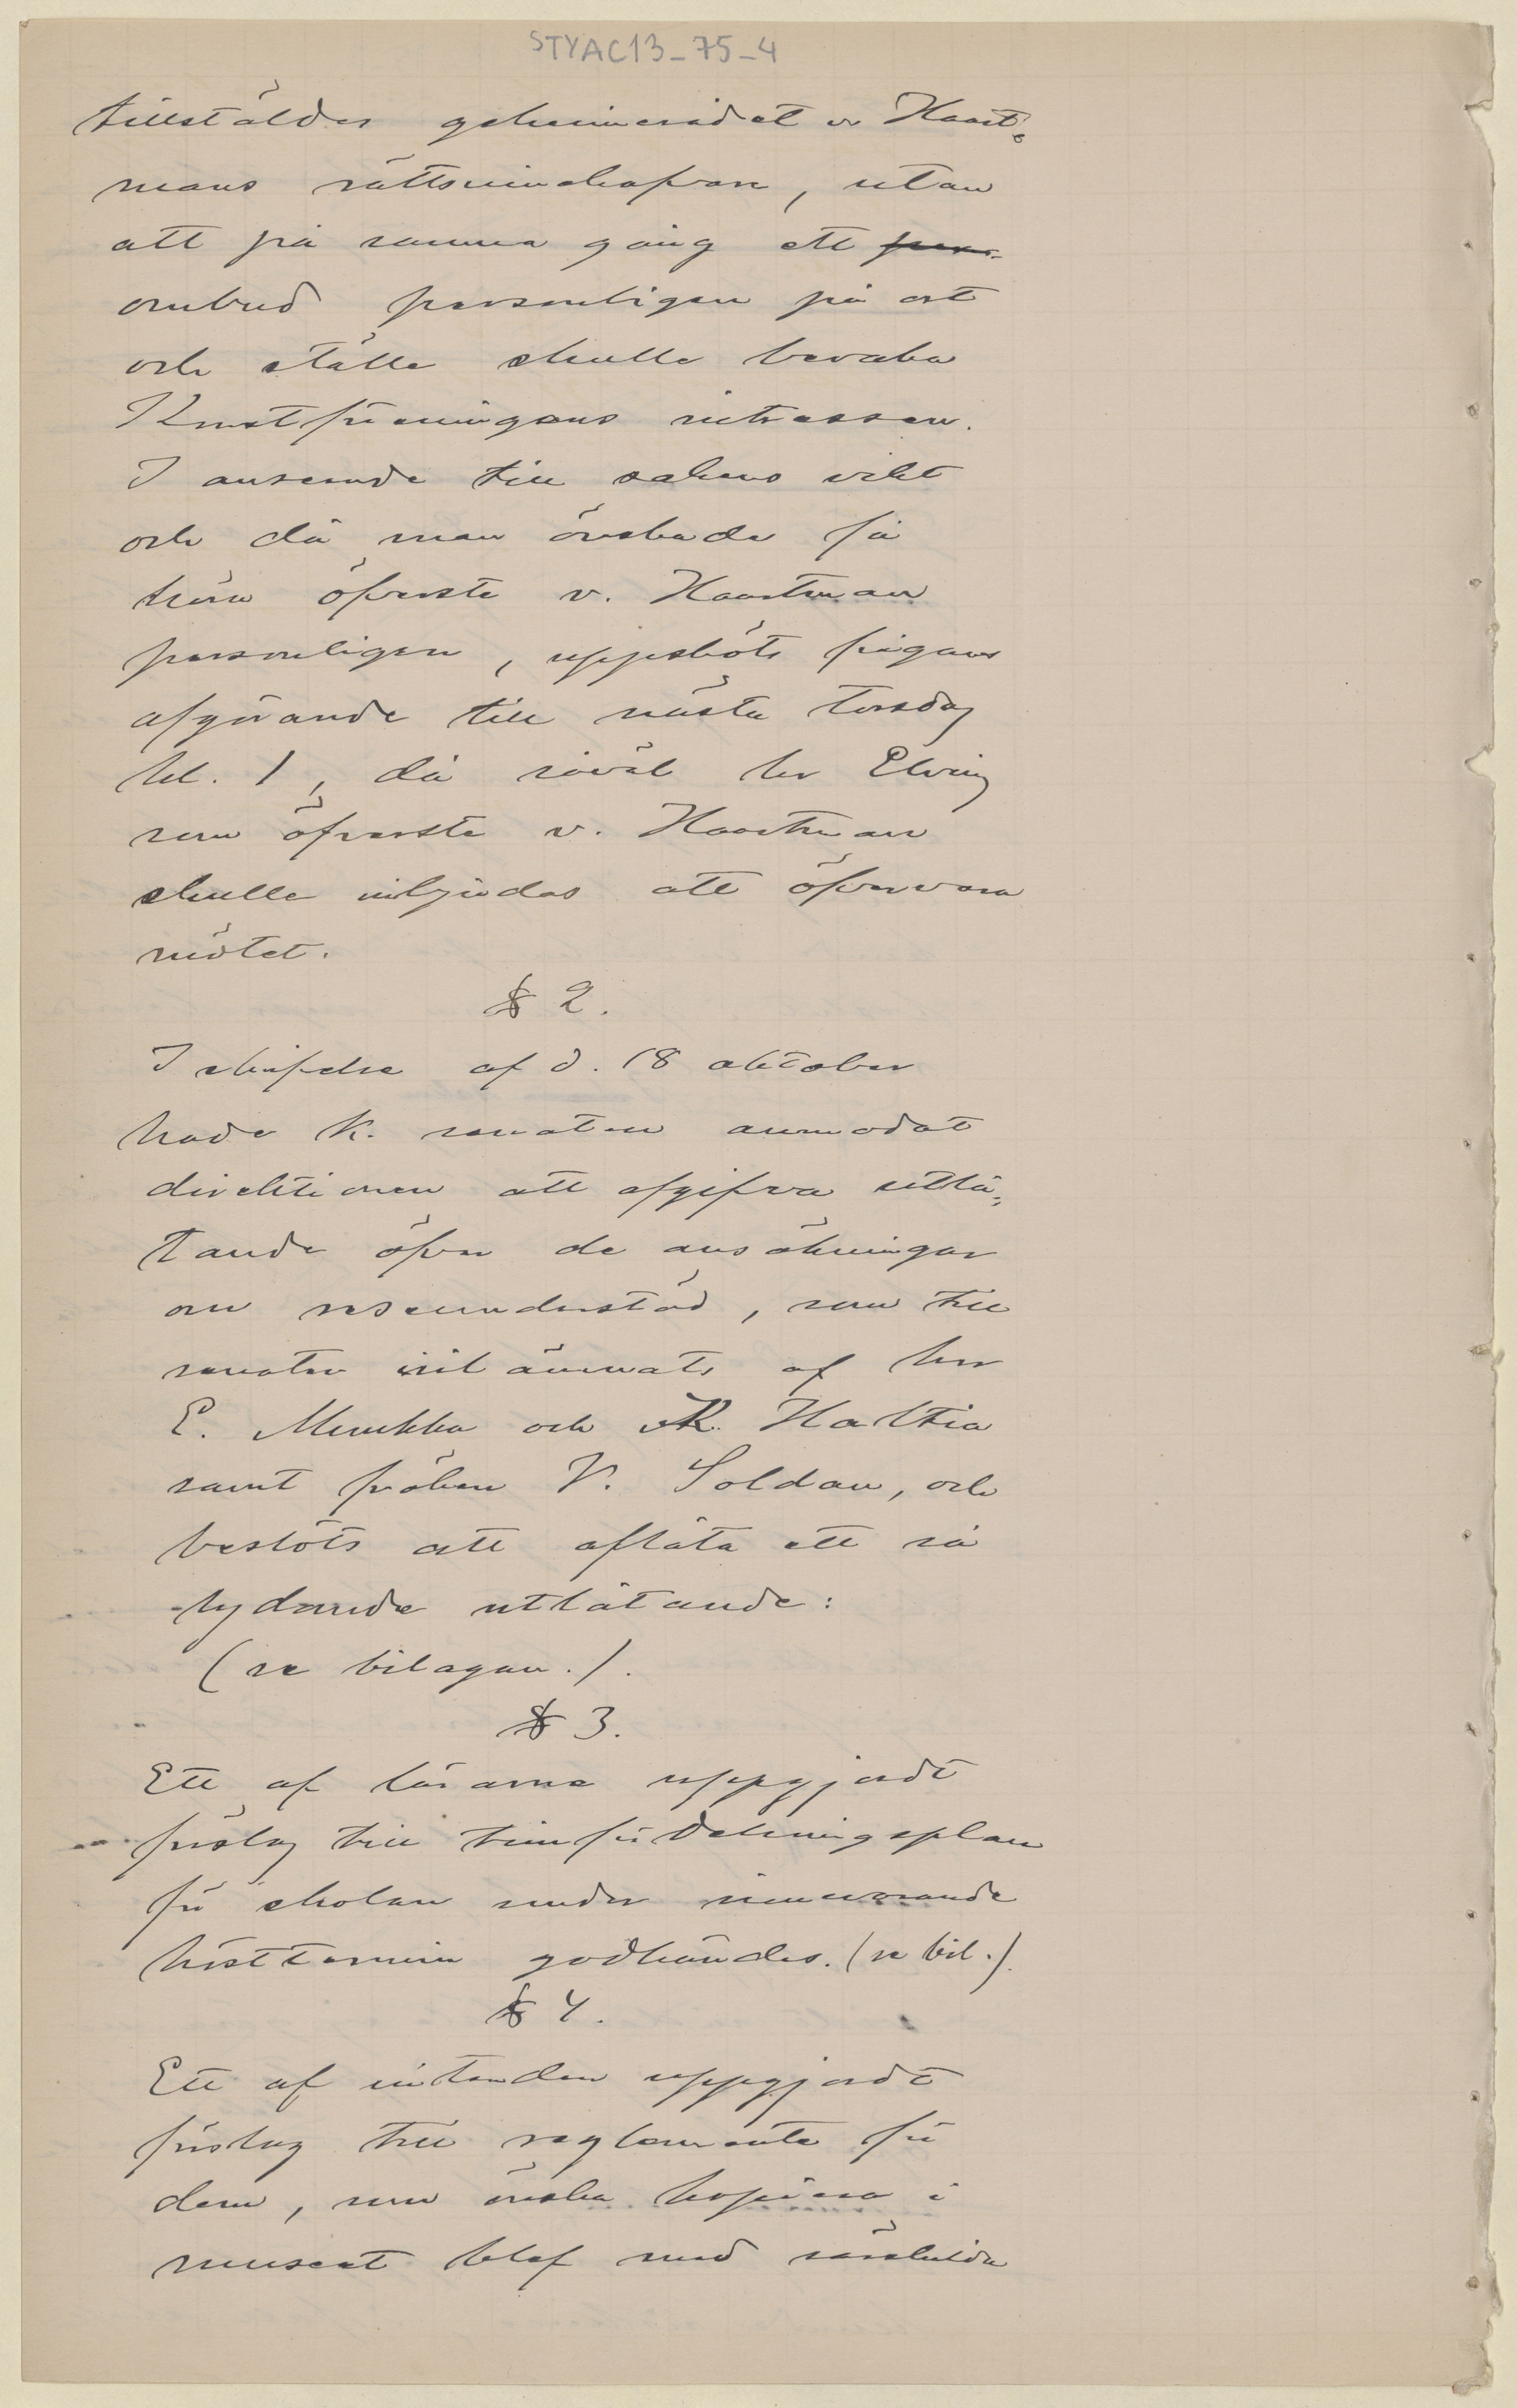 STYAC13_75-4
tillstäldes geheimerådet v Haart-
mans rättsinnehafvare, utan
att på samma gång ett
ombud personligen på ort
och ställe skulle bevaka
Konstföreningens intressen.
I anseende till sakens vikt
och då man önskade få
höra öfverste v. Haartman
personligen, uppsköts frågans
afgörande till nästa torsdag
kl. 1, då såväl hr Elving
som öfverste v. Haartman
skulle inbjudas att öfvervara
mötet.
§ 2.
I skrifvelse af d. 18 oktober
hade K. senaten anmodat
direktionen att afgifva utlå-
tande öfver de ansökningar
om reseunderstöd, som till
senaten inlämnats af hrr
E. Munkka och K. Haltia
samt fröken V. Soldan, och
beslöts att aflåta ett så
lydande utlåtande:
(se bilagan.).
§ 3.
Ett af lärarne uppgjordt
förslag till timfördelningsplan
för skolan under innevarande
hösttermin godkändes. (se bil.).
§ 4.
Ett af intenden uppgjordt
förslag till reglemente för
dem, som önska kopiera i
museet blef med särskilda